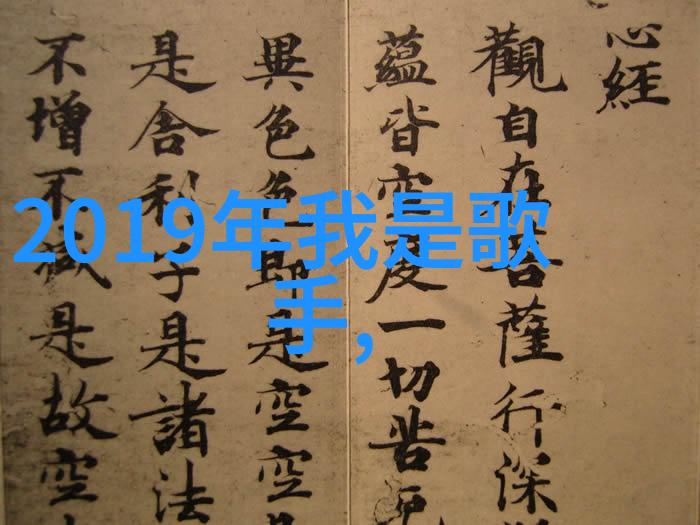 心經
觀自在菩薩行深
蘊皆空度一切苦厄
異色色即是空空
是舍利子是諸法
不增不減是故空
2019年我是歌
手,